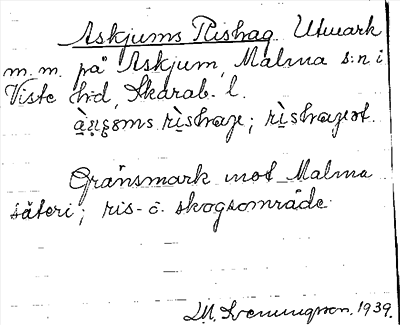 Askjums Rishag Utmark
m.m. på Askjum, Malma s:n i
Viste h:d, Skarab. l.
rìshaʒe; rìshaʒet.
Gränsmark mot Malma
säteri; ris- o. skogsområde
Svenungsson. 1939.